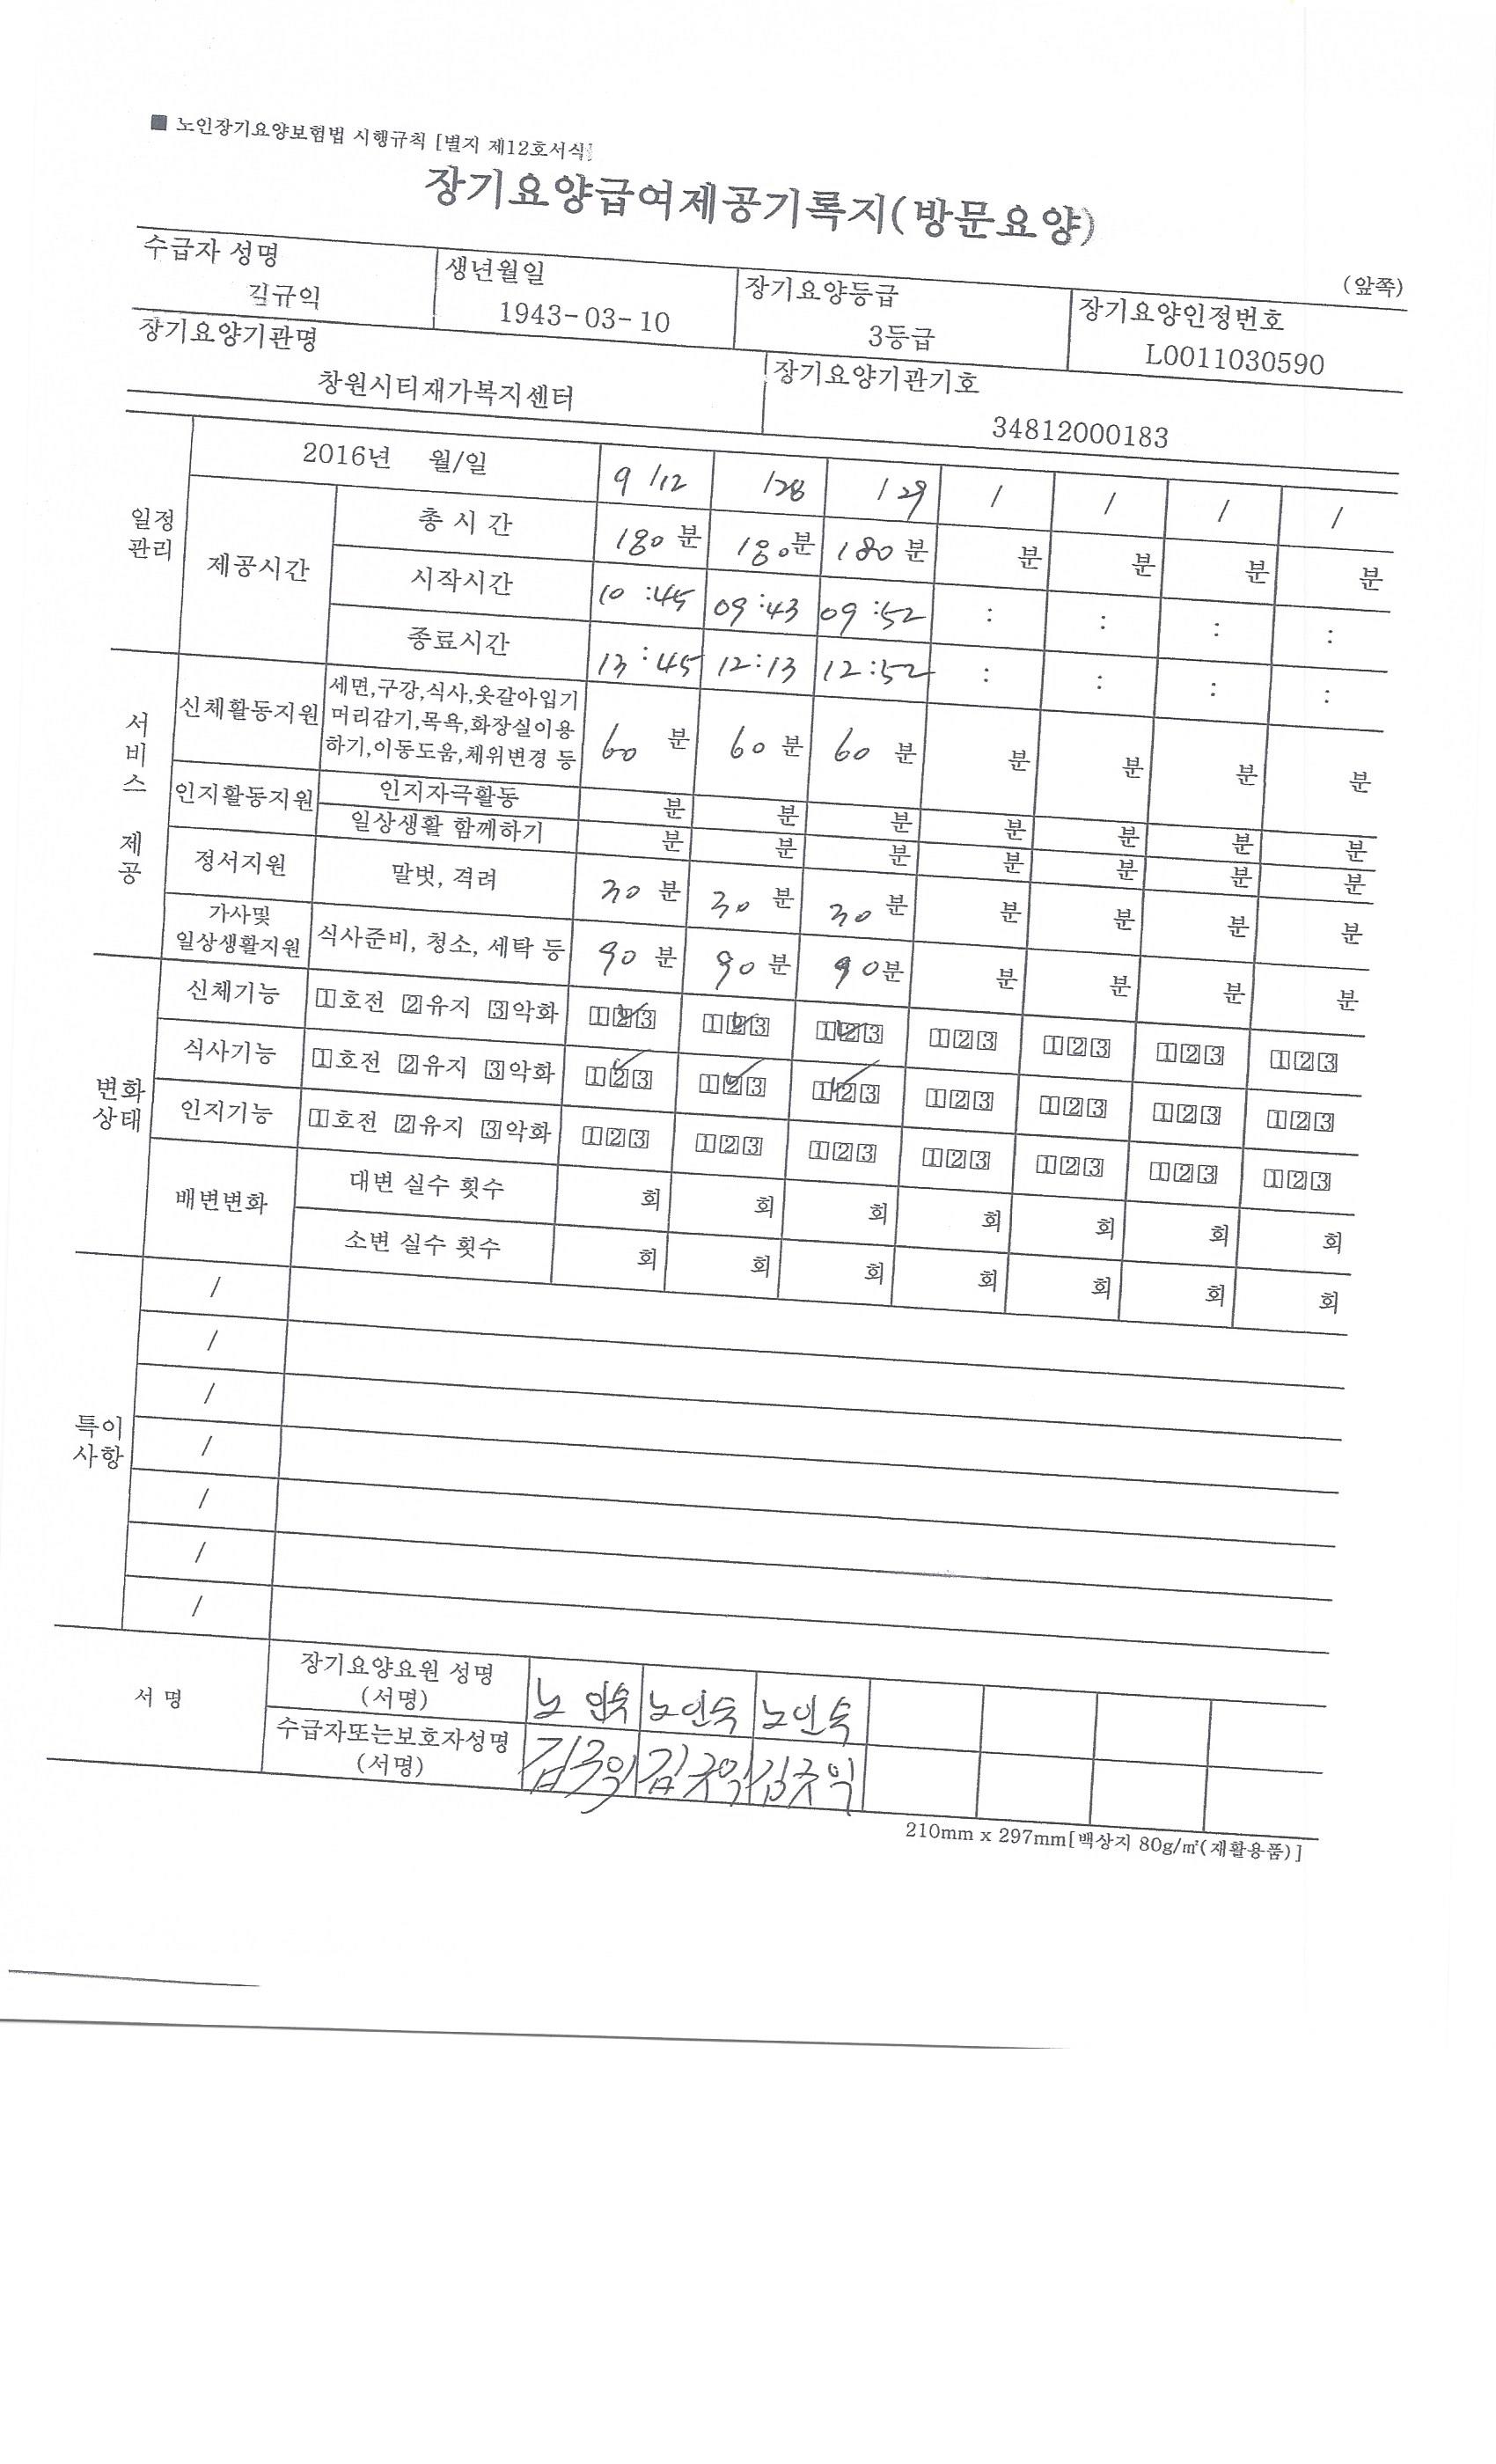 ■ 노인장기요양보험법 시행규칙 [별지 제12호서식]
장기요양급여제공기록지(방문요양)
(앞쪽)
수급자 성명 생년월일 장기요양등급 장기요양인정번호
김규익 1943-03-10 3등급 L0011030590
장기요양기관명 장기요양기관기호
창원시티재가복지센터 34812000183
일정관리
2016년 월/일 9/12 /28 /29 / / / /
제공시간
총 시 간 180분 180분 180분 분 분 분 분
시작시간 10:45 09:43 09:52 : : : :
종료시간 13:45 12:13 12:52 : : : :
서비스 제공
신체활동지원 세면,구강,식사,옷갈아입기
머리감기,목욕,화장실이용
하기,이동도움,체위변경 등 60분 60분 60분 분 분 분 분
인지활동지원 인지자극활동 분 분 분 분 분 분 분
일상생활 함께하기 분 분 분 분 분 분 분
정서지원 말벗, 격려 30분 30분 30분 분 분 분 분
가사및
일상생활지원 식사준비, 청소, 세탁 등 90분 90분 90분 분 분 분 분
변화상태
신체기능 1호전 2유지 3악화 1✓23 1✓23 1✓23 123 123 123 123
식사기능 1호전 2유지 3악화 1✓23 1✓23 1✓23 123 123 123 123
인지기능 1호전 2유지 3악화 123 123 123 123 123 123 123
배변변화 대변 실수 횟수 회 회 회 회 회 회 회
소변 실수 횟수 회 회 회 회 회 회 회
특이사항
/
/
/
/
/
/
/
서 명
장기요양요원 성명
(서명) 노인숙 노인숙 노인숙
수급자또는보호자성명
(서명) 김규익 김규익 김규익
210mm x 297mm[백상지 80g/㎡(재활용품)]